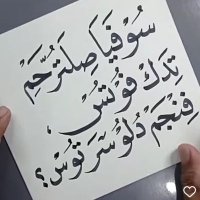 سُوْفِيَا صِلَتُرَّحِمْ
تِدَكْ فُوْتُسْ،
فِنْجَمْ دُلُوْ سَرَتُوْسْ؟